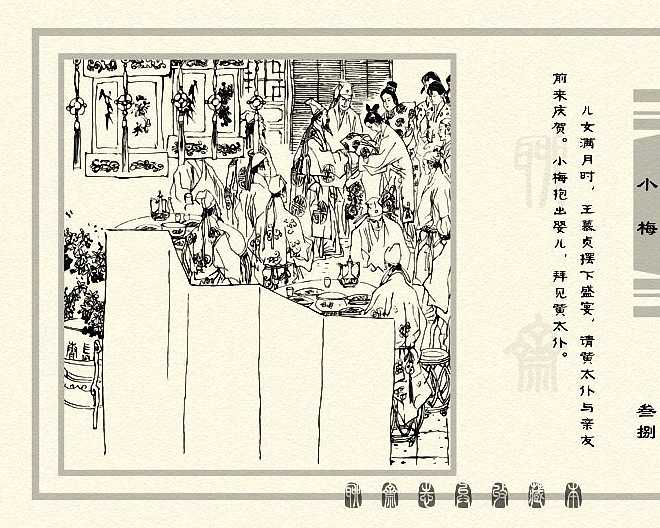 儿女满月时，王慕贞摆下盛宴，请黄太仆与亲友
前来庆贺。小梅抱出婴儿，拜见黄太仆。
小梅
叁捌
聊斋志异收藏本